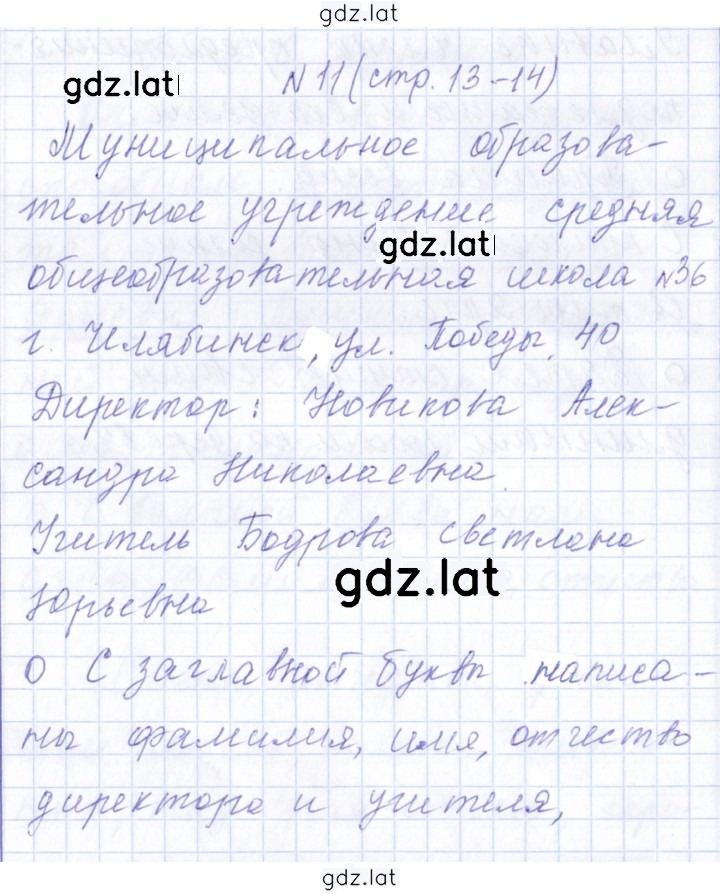 gdz.lat
gdz.lat
№ 11 (стр. 13-14)
Муниципальное образова-
тельное учреждение средняя
gdz.lat
общеобразовательная школа №36
г. Челябинск, ул. Победы, 40
Директор: Новикова Алек-
сандра Николаевна.
Учитель Бодрова Светлана
gdz.lat
Юрьевна
О С заглавной буквы написа-
ны фамилия, имя, отчество
директора и учителя,
gdz.lat